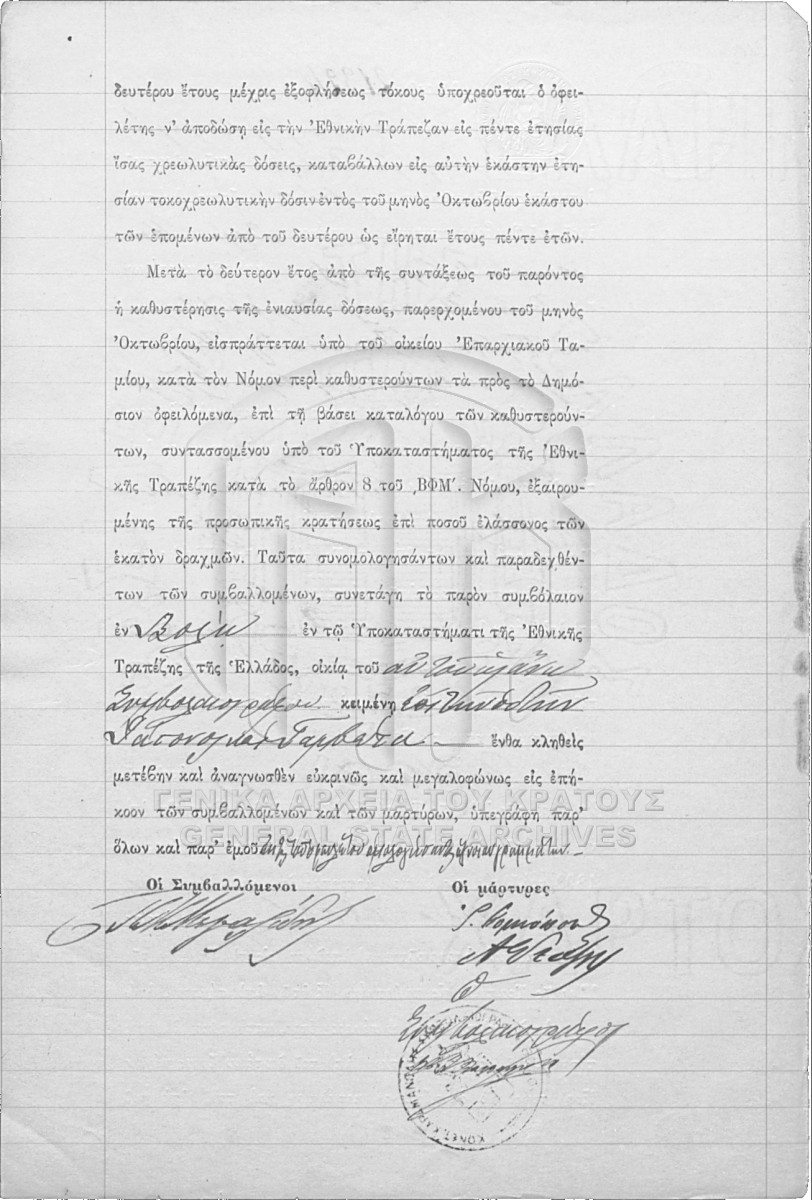 δευτέρου ἔτους μέχρις ἐξοφλήσεως τόκους ὑποχρεοῦται ὁ ὀφει-
λέτης ν' ἀποδώσῃ εἰς τὴν Ἐθνικὴν Τράπεζαν εἰς πέντε ἐτησίας
ἴσας χρεωλυτικὰς δόσεις, καταβάλλων εἰς αὐτὴν ἑκάστην ἐτη-
σίαν τοκοχρεωλυτικὴν δόσιν ἐντὸς τοῦ μηνὸς Ὀκτωβρίου ἑκάστου
τῶν ἑπομένων ἀπὸ τοῦ δευτέρου ὡς εἴρηται ἔτους πέντε ἐτῶν.
Μετὰ τὸ δεύτερον ἔτος ἀπὸ τῆς συντάξεως τοῦ παρόντος
ἡ καθυστέρησις τῆς ἐνιαυσίας δόσεως, παρερχομένου τοῦ μηνὸς
Ὀκτωβρίου, εἰσπράττεται ὑπὸ τοῦ οἰκείου Ἐπαρχιακοῦ Τα-
μίου, κατὰ τὸν Νόμον περὶ καθυστερούντων τὰ πρὸς τὸ Δημό-
σιον ὀφειλόμενα, ἐπὶ τῇ βάσει καταλόγου τῶν καθυστερούν-
των, συντασσομένου ὑπὸ τοῦ Ὑποκαταστήματος τῆς Ἐθνι-
κῆς Τραπέζης κατὰ τὸ ἄρθρον 8 τοῦ ͵ΒΦΜ΄. Νόμου, ἐξαιρου-
μένης τῆς προσωπικῆς κρατήσεως ἐπὶ ποσοῦ ἐλάσσονος τῶν
ἑκατὸν δραχμῶν. Ταῦτα συνομολογησάντων καὶ παραδεχθέν-
των τῶν συμβαλλομένων, συνετάγη τὸ παρὸν συμβόλαιον
ἐν Βόλῳ ἐν τῷ Ὑποκαταστήματι τῆς Ἐθνικῆς
Τραπέζης τῆς Ἑλλάδος, οἰκίᾳ τοῦ
Συμβολαιογράφου κειμένῃ
ἔνθα κληθεὶς
μετέβην καὶ ἀναγνωσθὲν εὐκρινῶς καὶ μεγαλοφώνως εἰς ἐπή-
κοον τῶν συμβαλλομένων καὶ τῶν μαρτύρων, ὑπεγράφη παρ'
ὅλων καὶ παρ' ἐμοῦ
ΓΕΝΙΚΑ ΑΡΧΕΙΑ ΤΟΥ ΚΡΑΤΟΥΣ
GENERAL STATE ARCHIVES
Οἱ Συμβαλλόμενοι Οἱ μάρτυρες
Ὁ
Συμβολαιογράφος